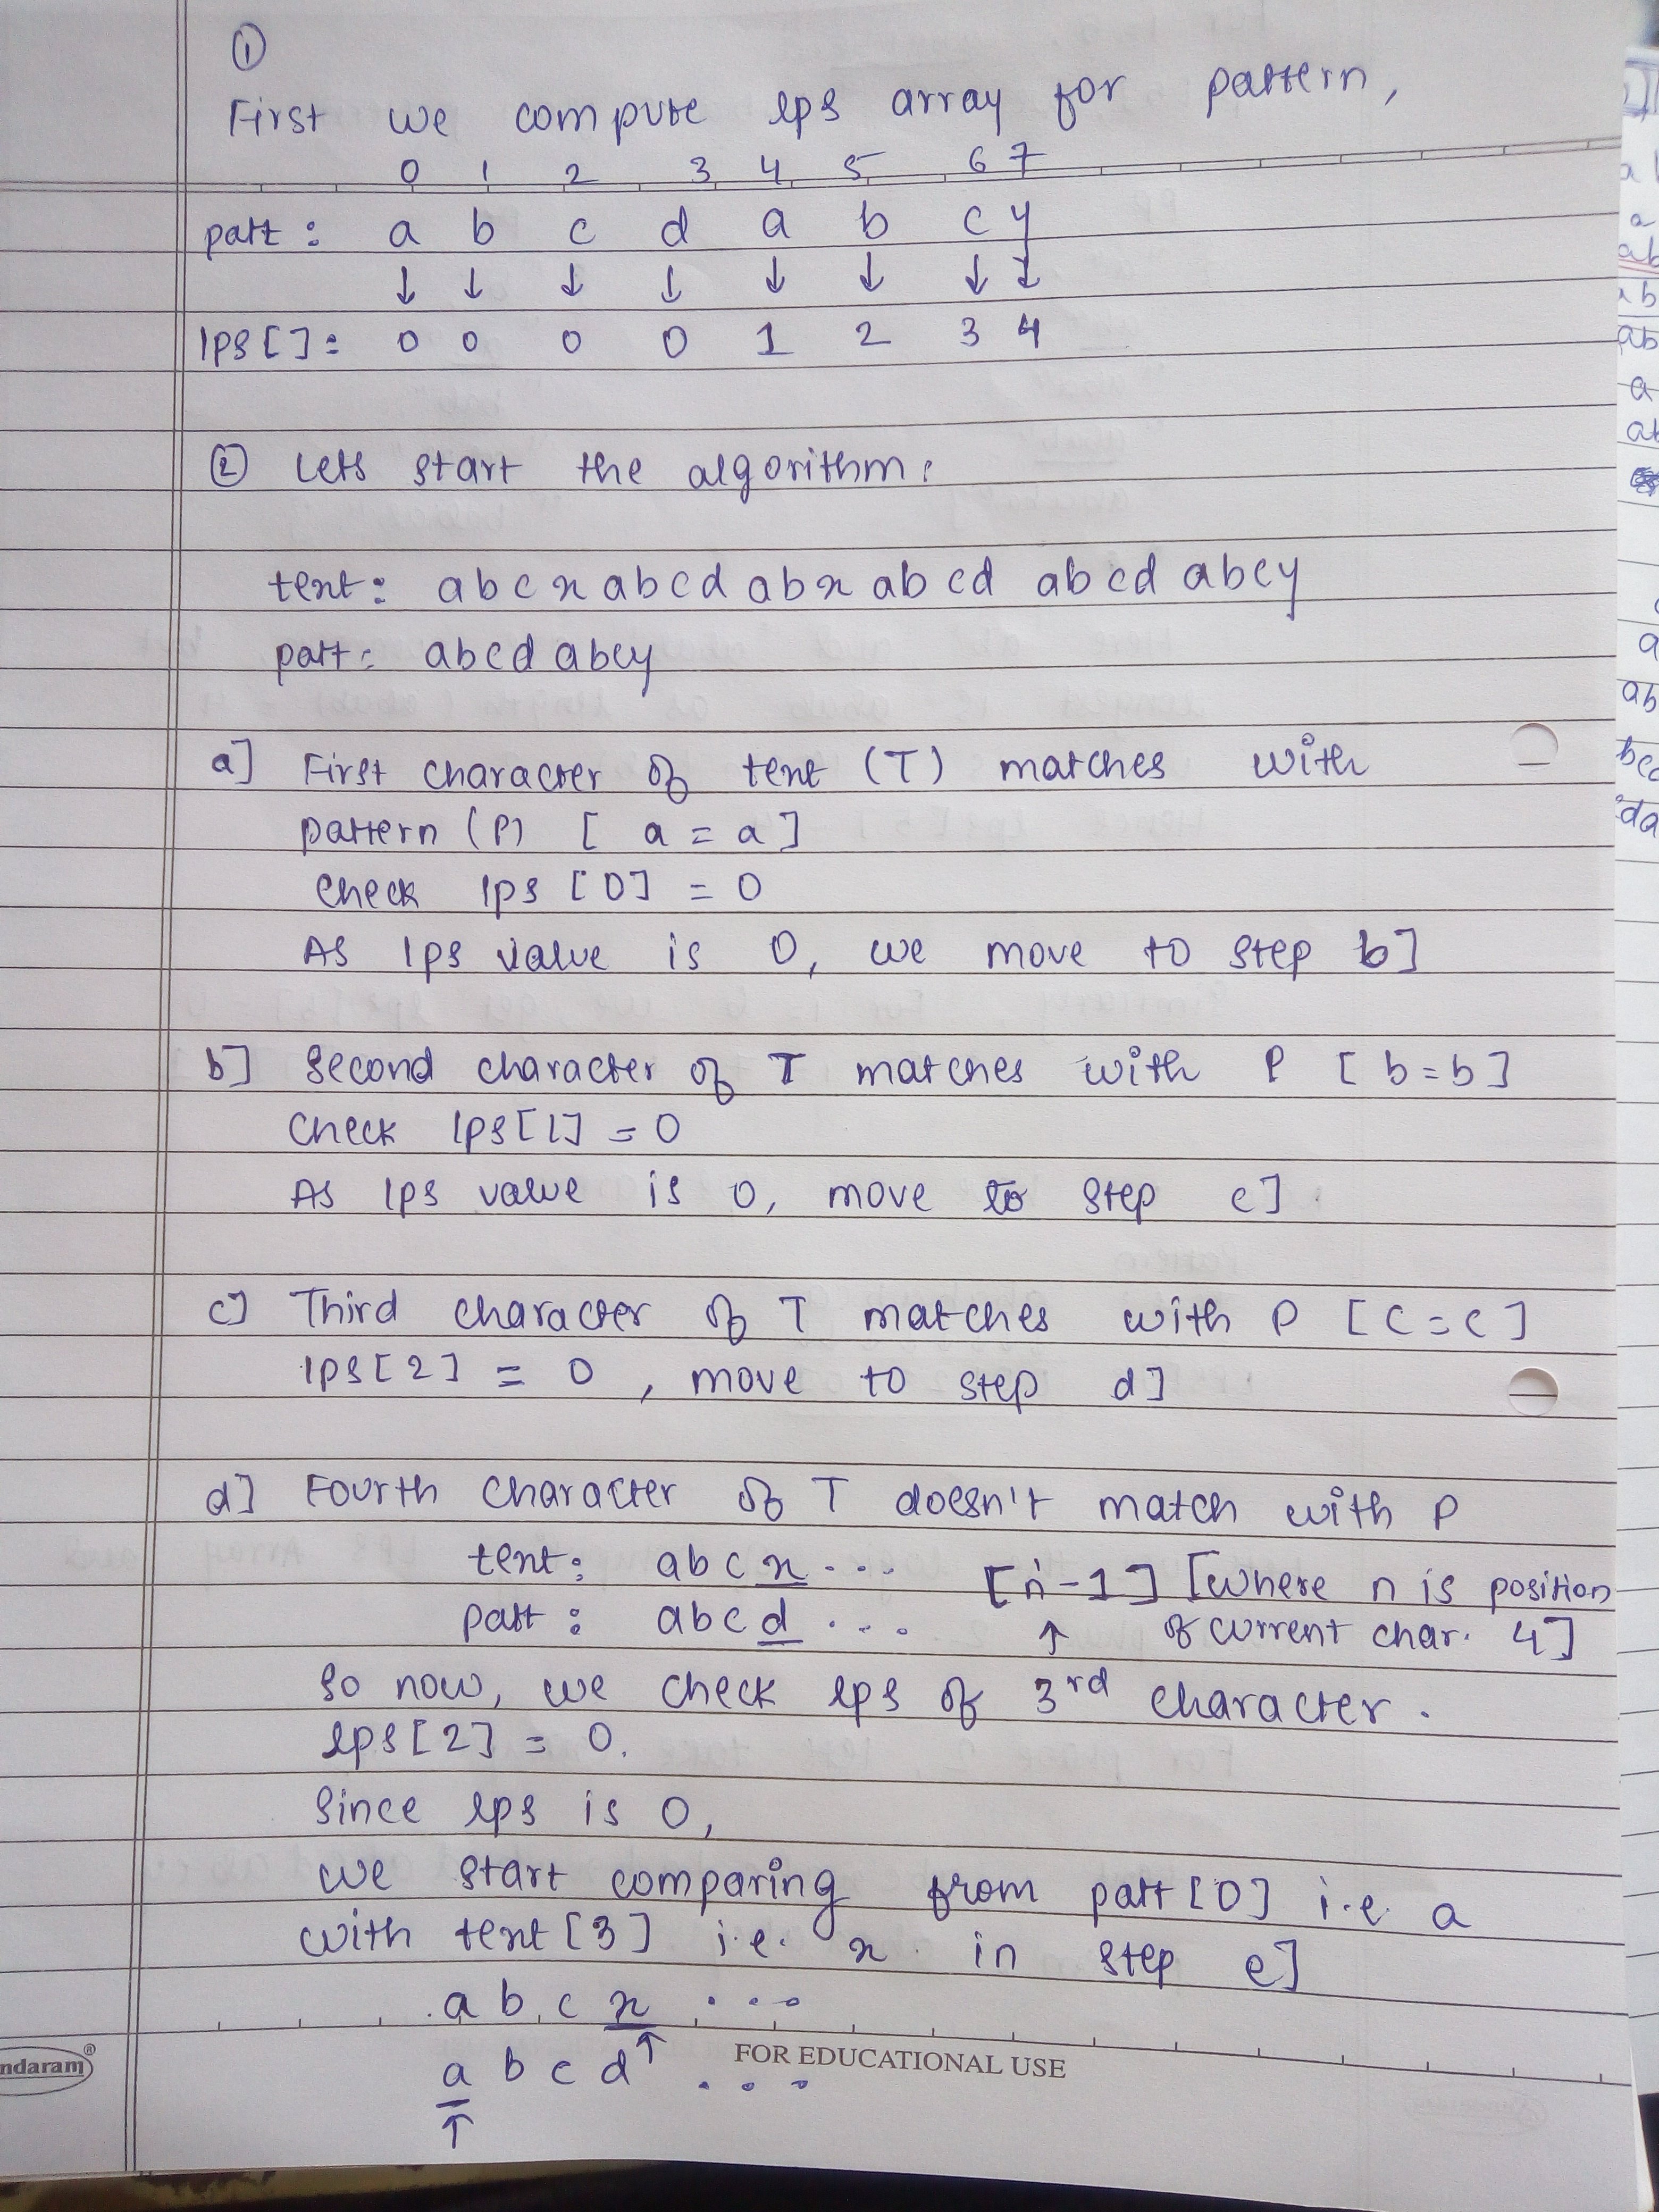 ①
First we compute lps array for pattern,
0 1 2 3 4 5 6 7
patt : a b c d a b c y
↓ ↓ ↓ ↓ ↓ ↓ ↓ ↓
lps [ ] : 0 0 0 0 1 2 3 4
② Lets start the algorithm:
text: abcxabcdabxabcd abcd abcy
patt: abcdabcy
a] First character of text (T) matches with
pattern (P) [ a = a ]
Check lps [0] = 0
As lps value is 0, we move to step b]
b] Second character of T matches with P [ b = b ]
Check lps [1] = 0
As lps value is 0, move to step c]
c] Third character of T matches with P [ c = c ]
lps [2] = 0, move to step d]
d] Fourth character of T doesn't match with P
text: abcx ... [n-1] [where n is position
patt : abcd ... ↑ of current char. 4]
so now, we check lps of 3rd character.
lps [2] = 0.
Since lps is 0,
we start comparing from patt [0] i.e a
with text [3] i.e. x in step e]
a b c x ...
a b c d ↑ ...
↑
ndaram®
FOR EDUCATIONAL USE